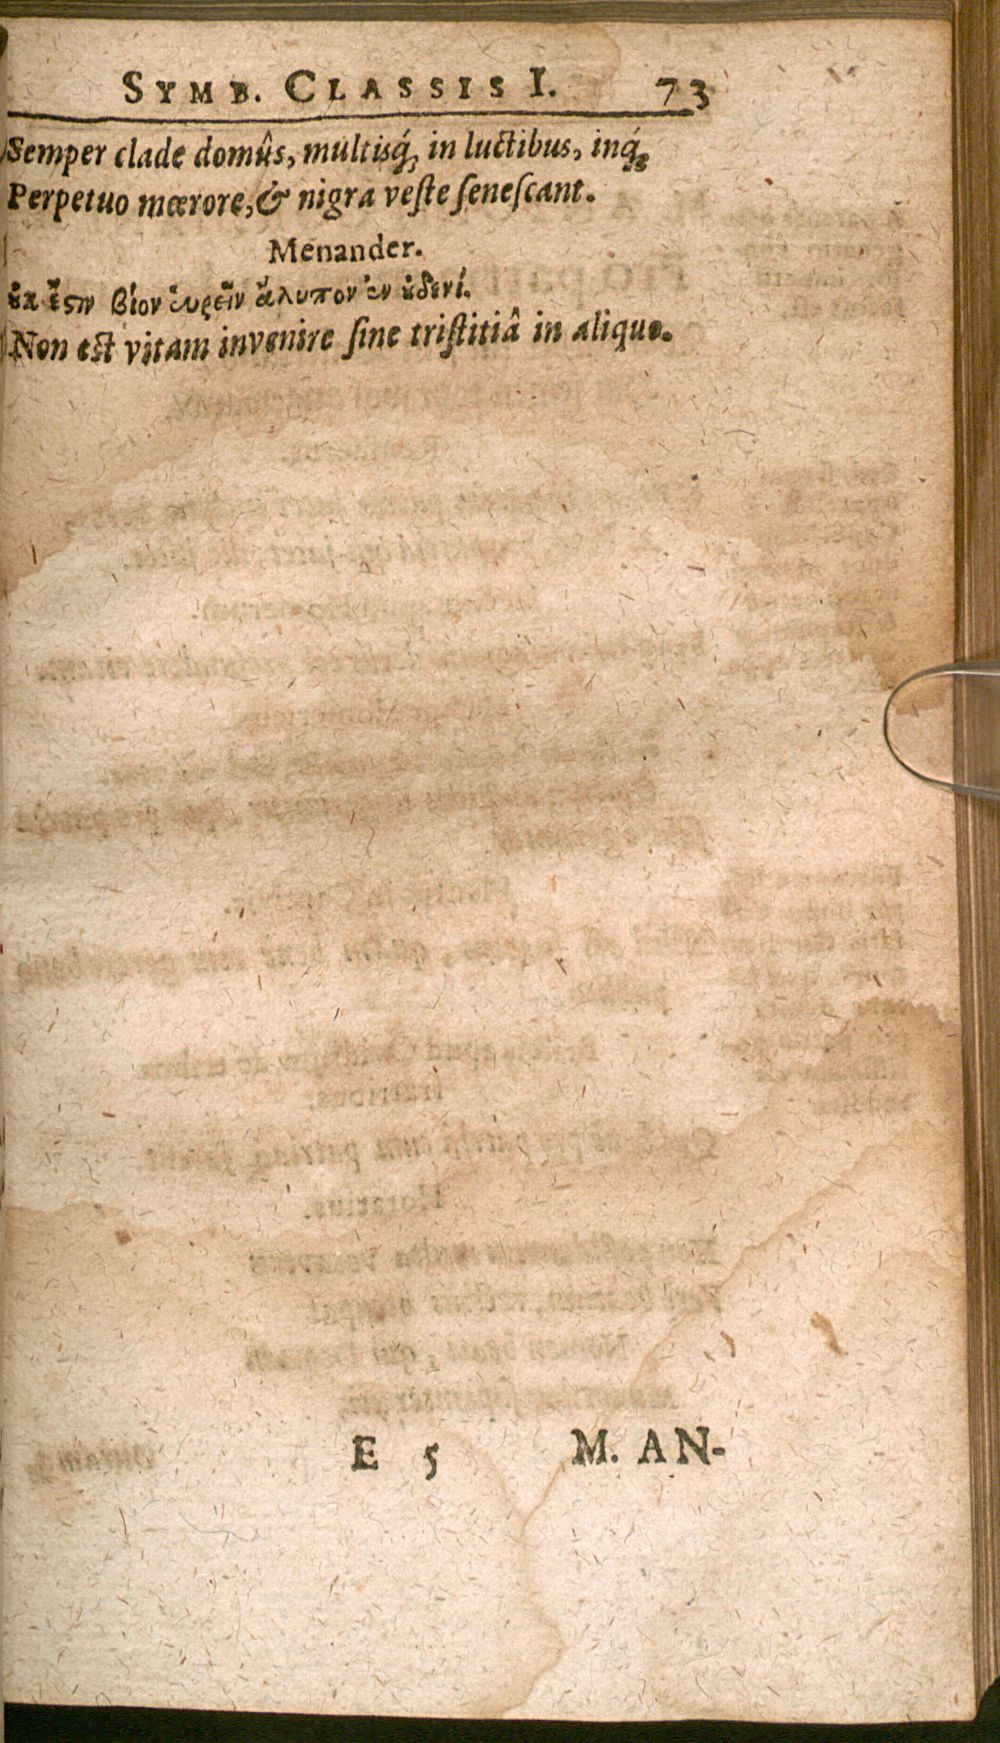 SYMB. CLASSIS I. 73
Semper clade domûs, multisq́, in luctibus, inq́;
Perpetuo mœrore, & nigra veste senescant.
Menander.
ȣ̓κ ἔϛιν βίον ἑυρεῖν ἄλυπον ἐν ȣ̓δενί.
Non est vitam invenire sine tristitiâ in aliquo.
E 5 M. AN-